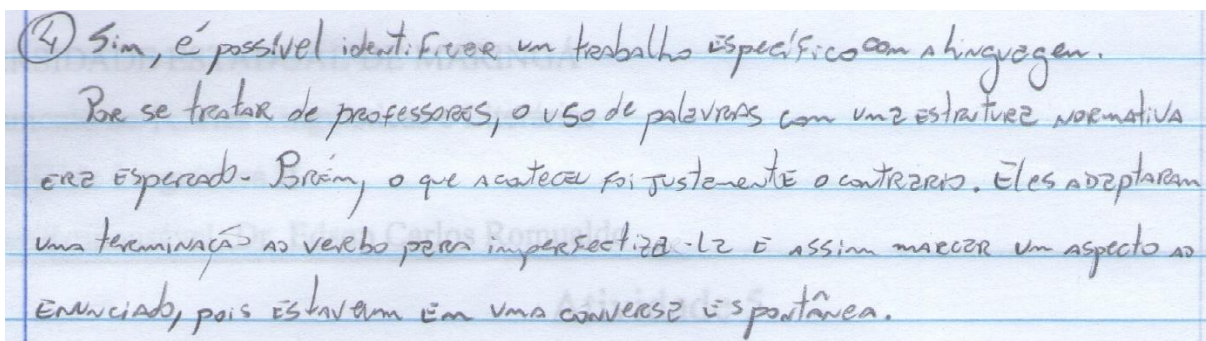 4) Sim, é possível identificar um trabalho específico com a linguagem.
Por se tratar de professores, o uso de palavras com uma estrutura normativa
era esperado. Porém, o que aconteceu foi justamente o contrário. Eles adaptaram
uma terminação ao verbo para imperfectizá-la e assim marcar um aspecto ao
enunciado, pois estavam em uma conversa espontânea.